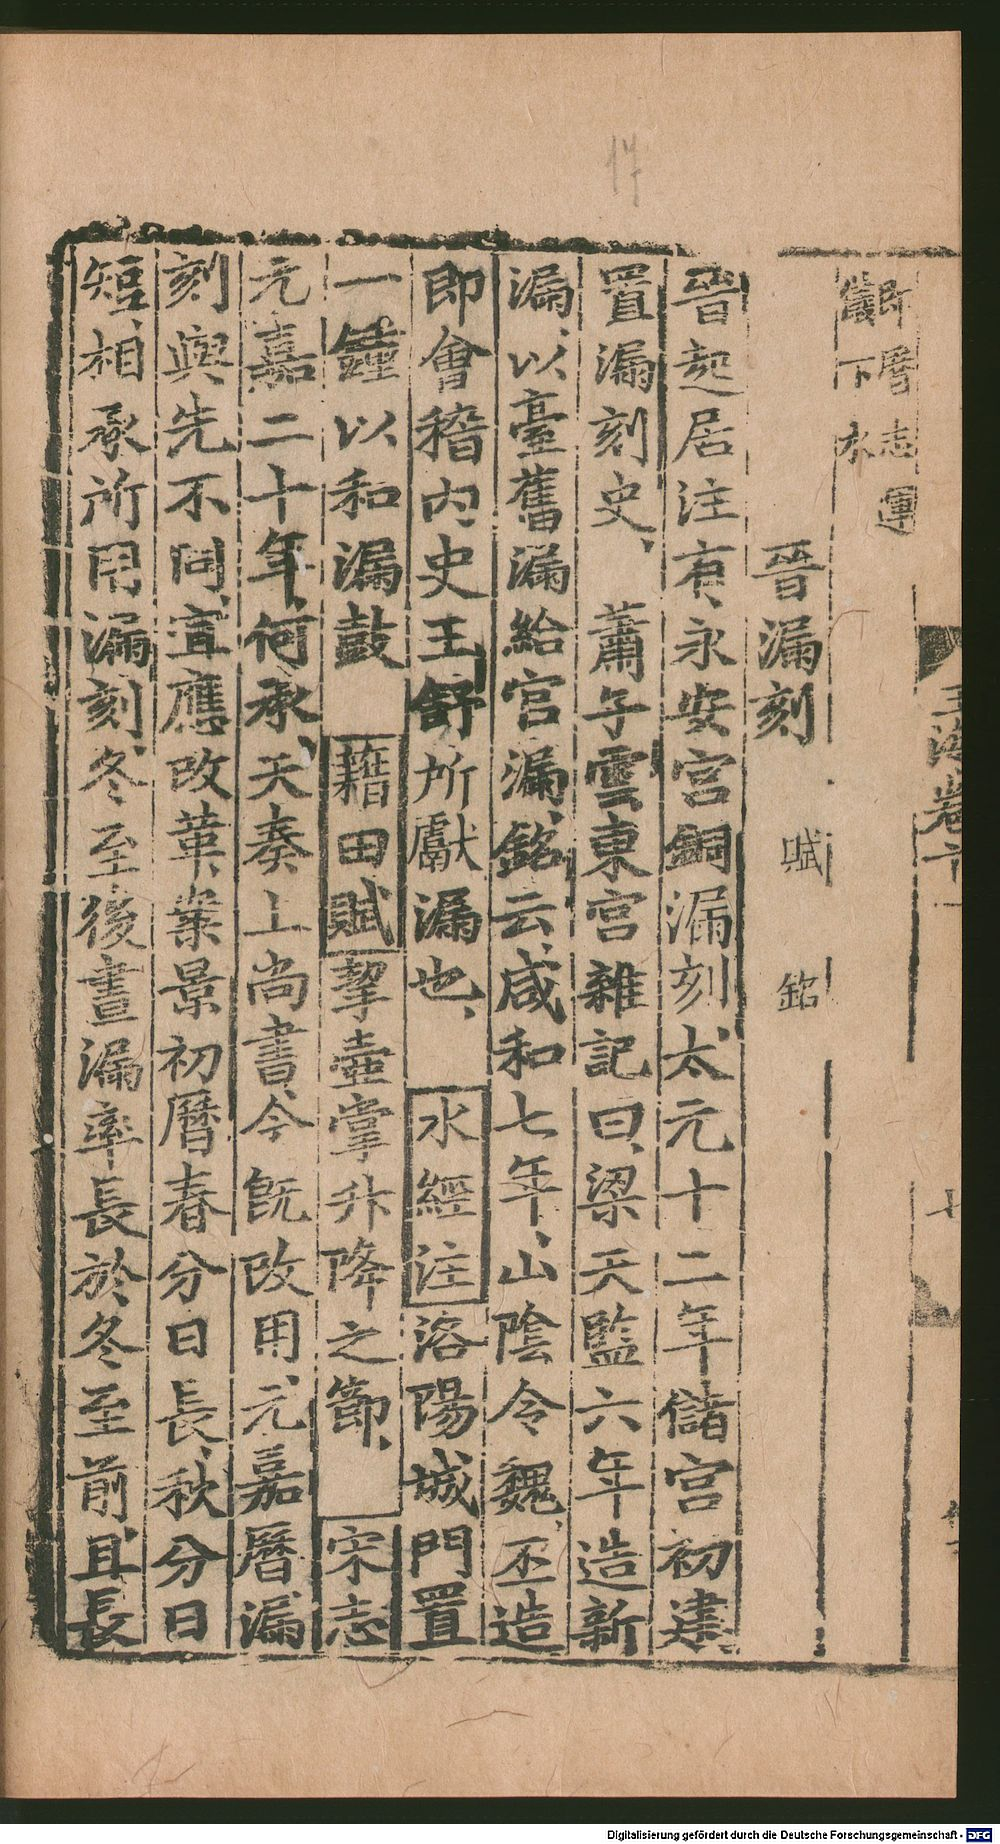 即曆志運
儀下水
晉漏刻 賦 銘
晉起居注有永安宮銅漏刻太元十二年儲宮初建
置漏刻史、 蕭子雲東宮雜記曰、梁天監六年造新
漏、以臺舊漏給宮漏、銘云咸和七年、山陰令魏丕造
即會稽內史王舒所獻漏也、 水經注洛陽城門置
一鍾以和漏鼓 籍田賦挈壺掌升降之節、 宋志
元嘉二十年、何承天奏上尚書、今既改用元嘉曆漏
刻與先不同、宜應改革、案景初曆春分日長、秋分日
短、相承所用漏刻、冬至後晝漏率長於冬至前、且長
玉海卷十一
七
17
Digitalisierung gefördert durch die Deutsche Forschungsgemeinschaft - DFG